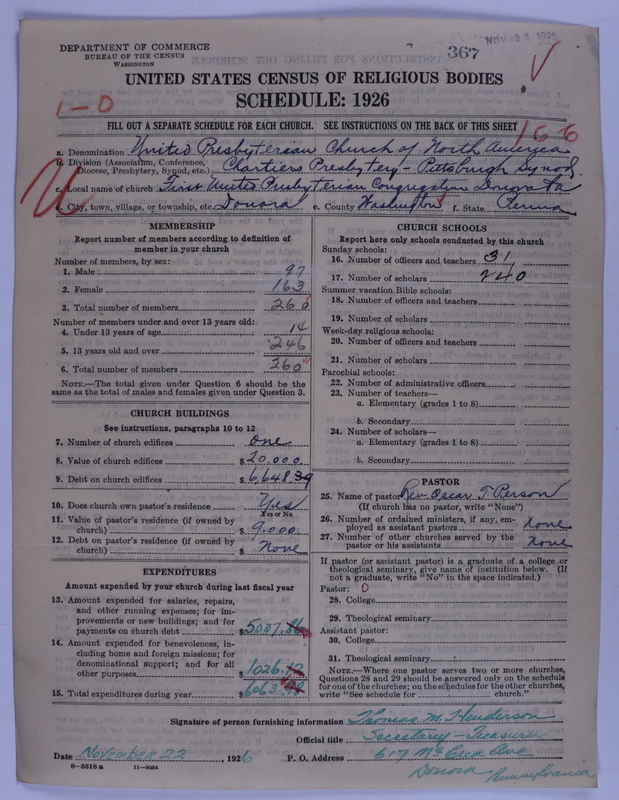 DEPARTMENT OF COMMERCE
BUREAU OF THE CENSUS
WASHINGTON
367
NOV 23 1926
UNITED STATES CENSUS OF RELIGIOUS BODIES
SCHEDULE: 1926
1-0
FILL OUT A SEPARATE SCHEDULE FOR EACH CHURCH. SEE INSTRUCTIONS ON THE BACK OF THIS SHEET
166
a. Denomination United Presbyterian Church of North America
b. Division (Association, Conference, Diocese, Presbytery, Synod, etc.) Chartiers Presbytery - Pittsburgh Synod.
c. Local name of church First United Presbyterian Congregation Donora Pa
d. City, town, village, or township, etc. Donora e. County Washington f. State Penna
MEMBERSHIP
Report number of members according to definition of
member in your church
Number of members, by sex:
1. Male 97
2. Female 163
3. Total number of members 260
Number of members under and over 13 years old:
4. Under 13 years of age 14
5. 13 years old and over 246
6. Total number of members 260
NOTE.—The total given under Question 6 should be
same as the total of males and females given under Question 3.
CHURCH BUILDINGS
See instructions, paragraphs 10 to 12
7. Number of church edifices one
8. Value of church edifices $20,000
9. Debt on church edifices $6,648.39
10. Does church own pastor's residence Yes
Yes or No
11. Value of pastor's residence (if owned by
church) $9,000
12. Debt on pastor's residence (if owned by
church) $None
EXPENDITURES
Amount expended by your church during last fiscal year
13. Amount expended for salaries, repairs,
and other running expenses; for im-
provements or new buildings; and for
payments on church debt $5037.86
14. Amount expended for benevolences, in-
cluding home and foreign missions; for
denominational support; and for all
other purposes $1026.12
15. Total expenditures during year $6063
CHURCH SCHOOLS
Report here only schools conducted by this church
Sunday schools:
16. Number of officers and teachers 31
17. Number of scholars 240
Summer vacation Bible schools:
18. Number of officers and teachers
19. Number of scholars
Week-day religious schools:
20. Number of officers and teachers
21. Number of scholars
Parochial schools:
22. Number of administrative officers
23. Number of teachers—
a. Elementary (grades 1 to 8)
b. Secondary
24. Number of scholars—
a. Elementary (grades 1 to 8)
b. Secondary
PASTOR
25. Name of pastor Rev Oscar T. Person
(If church has no pastor, write "None")
26. Number of ordained ministers, if any, em-
ployed as assistant pastors none
27. Number of other churches served by the
pastor or his assistants none
If pastor (or assistant pastor) is a graduate of a college or
theological seminary, give name of institution below. (If
not a graduate, write "No" in the space indicated.)
Pastor: 0
28. College
29. Theological seminary
Assistant pastor:
30. College
31. Theological seminary
NOTE.—Where one pastor serves two or more churches,
Questions 28 and 29 should be answered only on the schedule
for one of the churches; on the schedules for the other churches,
write "See schedule for church."
Signature of person furnishing information Thomas M. Henderson
Official title Secretary - Treasurer
Date November 22, 1926 P. O. Address 617 McCrea Ave
Donora Pennsylvania
8—5518a 11—9924